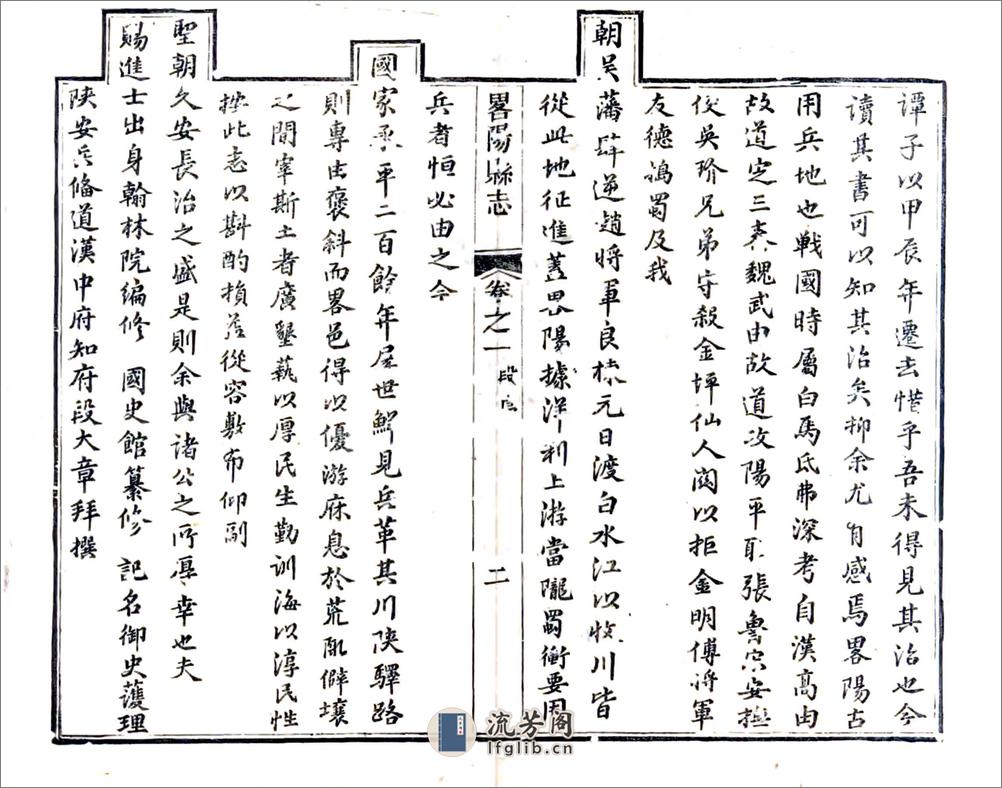 譚子以甲辰年遷去惜乎吾未得見其治也今
讀其書可以知其治矣抑余尤有感焉畧陽古
用兵地也戰國時屬白馬氐弗深考自漢高由
故道定三秦魏武由故道攻陽平取張魯宋安撫
使吳玠兄弟守殺金坪仙人關以拒金明傅將軍
友德搗蜀及我
朝吳藩肆逆趙將軍良棟元日渡白水江以收川皆
從此地征進蓋畧陽據洋利上游當隴蜀衝要用
畧陽縣志
卷之一
段序
二
兵者恒必由之今
國家承平二百餘年屢世鮮見兵革其川陝驛路
則專由褒斜而畧邑得以優游庥息於荒陬僻壤
之間宰斯土者廣墾蓺以厚民生勤訓誨以淳民性
按此志以斟酌損益從容敷布仰副
聖朝久安長治之盛是則余與諸公之所厚幸也夫
賜進士出身翰林院編修 國史館纂修 記名御史護理
陝安兵備道漢中府知府段大章拜撰
流芳阁
lfglib.cn